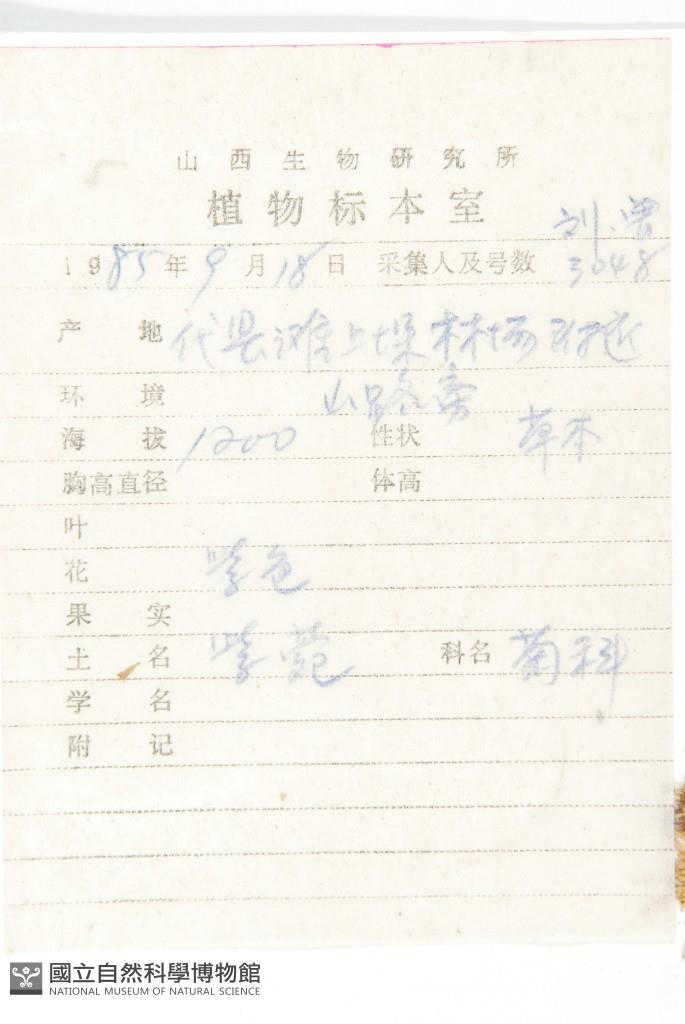 山西生物研究所
植物标本室
刘、曾
1985年9月18日 采集人及号数 3048
产 地 代县滩上垛林场附近
环 境 山路旁
海 拔 1200 性状 草本
胸高直径 体高
叶
花 紫色
果 实
土 名 紫菀 科名 菊科
学 名
附 记
國立自然科學博物館
NATIONAL MUSEUM OF NATURAL SCIENCE